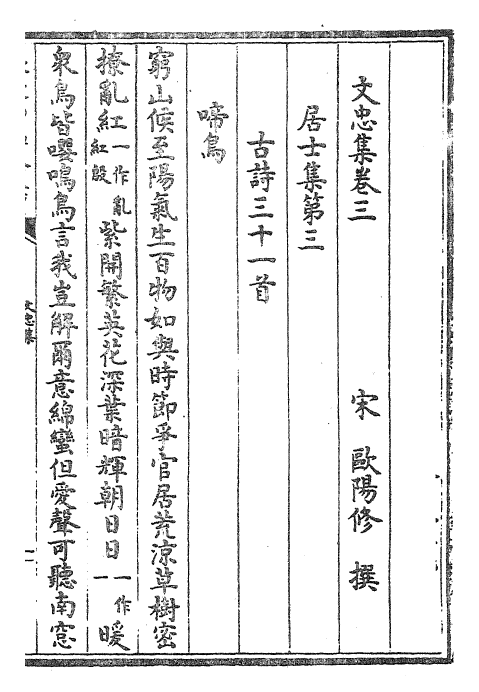 文忠集卷三
宋 歐陽修 撰
居士集第三
古詩三十一首
啼鳥
窮山候至陽氣生百物如與時節爭官居荒涼草樹密
撩亂紅一作亂紅殷紫開繁英花深葉暗輝朝日日一作一暖
衆鳥皆嚶鳴鳥言我豈解爾意綿蠻但愛聲可聽南窓